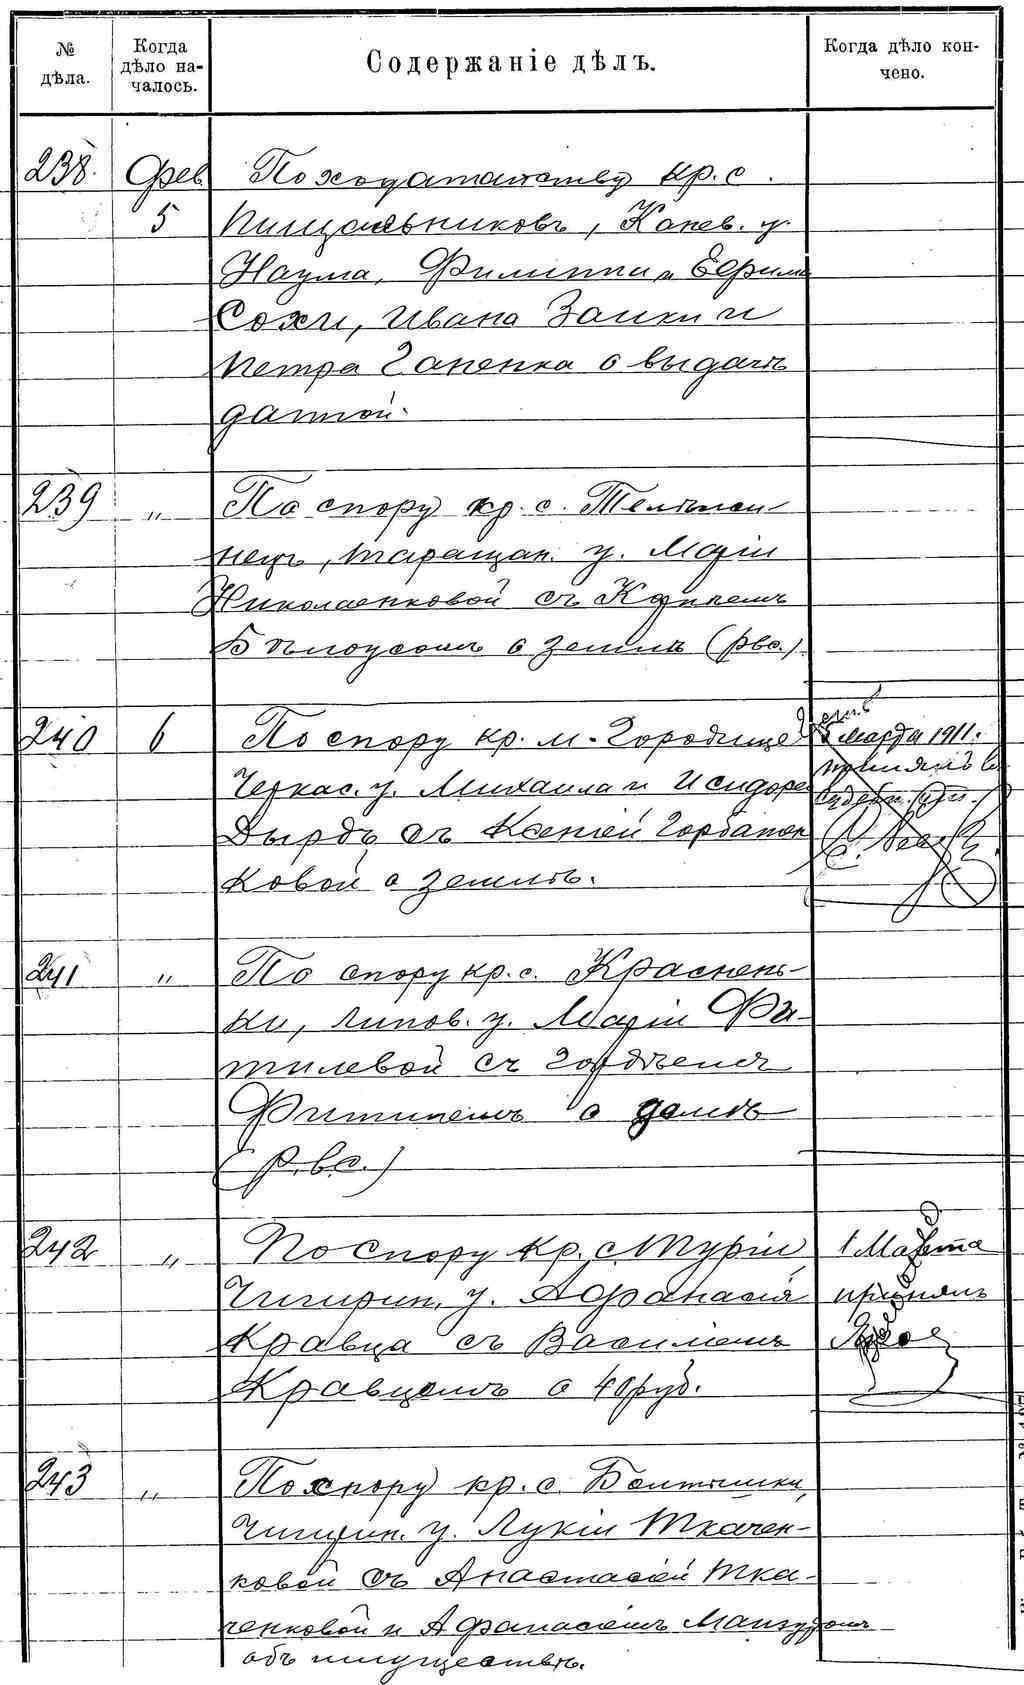 № дѣла.
Когда дѣло началось.
Содержаніе дѣлъ.
Когда дѣло кончено.
238. Фев. 5
По ходатайству кр. с.
Пищальниковъ, Канев. у.
Наума, Филиппа и Ефима
Сохи, Ивана Заики и
Петра Гапенка о выдачѣ
данной.
239 "
По спору кр. с.
нецъ, Таращан. у. Маріи
Николаенковой съ Карпомъ
Бѣлоусомъ о землѣ (рвс.)
240 6
По спору кр. м. Городище
Черкас. у. Михаила и Исидора
Дырдъ съ Ксеніей Горбатен-
ковой о землѣ.
5 марта 1911.
принялъ
судебн.
241 "
По спору кр. с. Краснень-
ки, Липов. у. Маріи Фи-
тилевой съ Гордѣемъ
о домѣ
(р.в.с.)
242 "
По спору кр. с. Туріи,
Чигирин. у. Афанасія
Кравца съ Василіемъ
Кравцомъ о 40 руб.
1 Марта
принялъ
243 "
По спору кр. с. Болтышки,
Чигирин. у. Лукіи Ткачен-
ковой съ Анастасіей Тка-
ченковой и Афанасіемъ
объ имуществѣ.